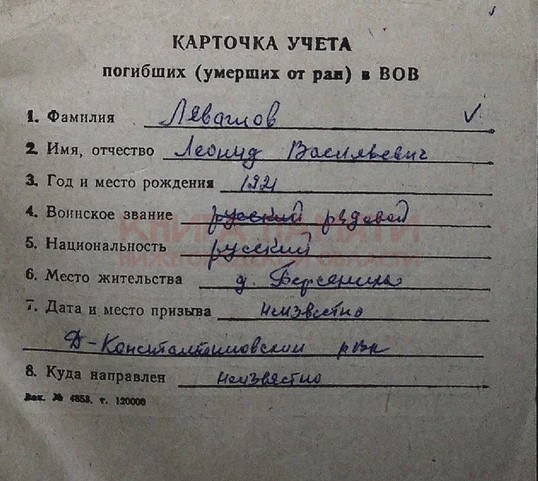 КАРТОЧКА УЧЕТА
погибших (умерших от ран) в ВОВ
1. Фамилия Левашов
2. Имя, отчество Леонид Васильевич
3. Год и место рождения 1921
4. Воинское звание русский рядовой
5. Национальность русский
КНИГА ПАМЯТИ
НИЖЕГОРОДСКОЙ ОБЛАСТИ
6. Место жительства д. Берсениха
7. Дата и место призыва неизвестно
Д-Константиновский рвк
8. Куда направлен неизвестно
Зак. № 4853. т. 120000